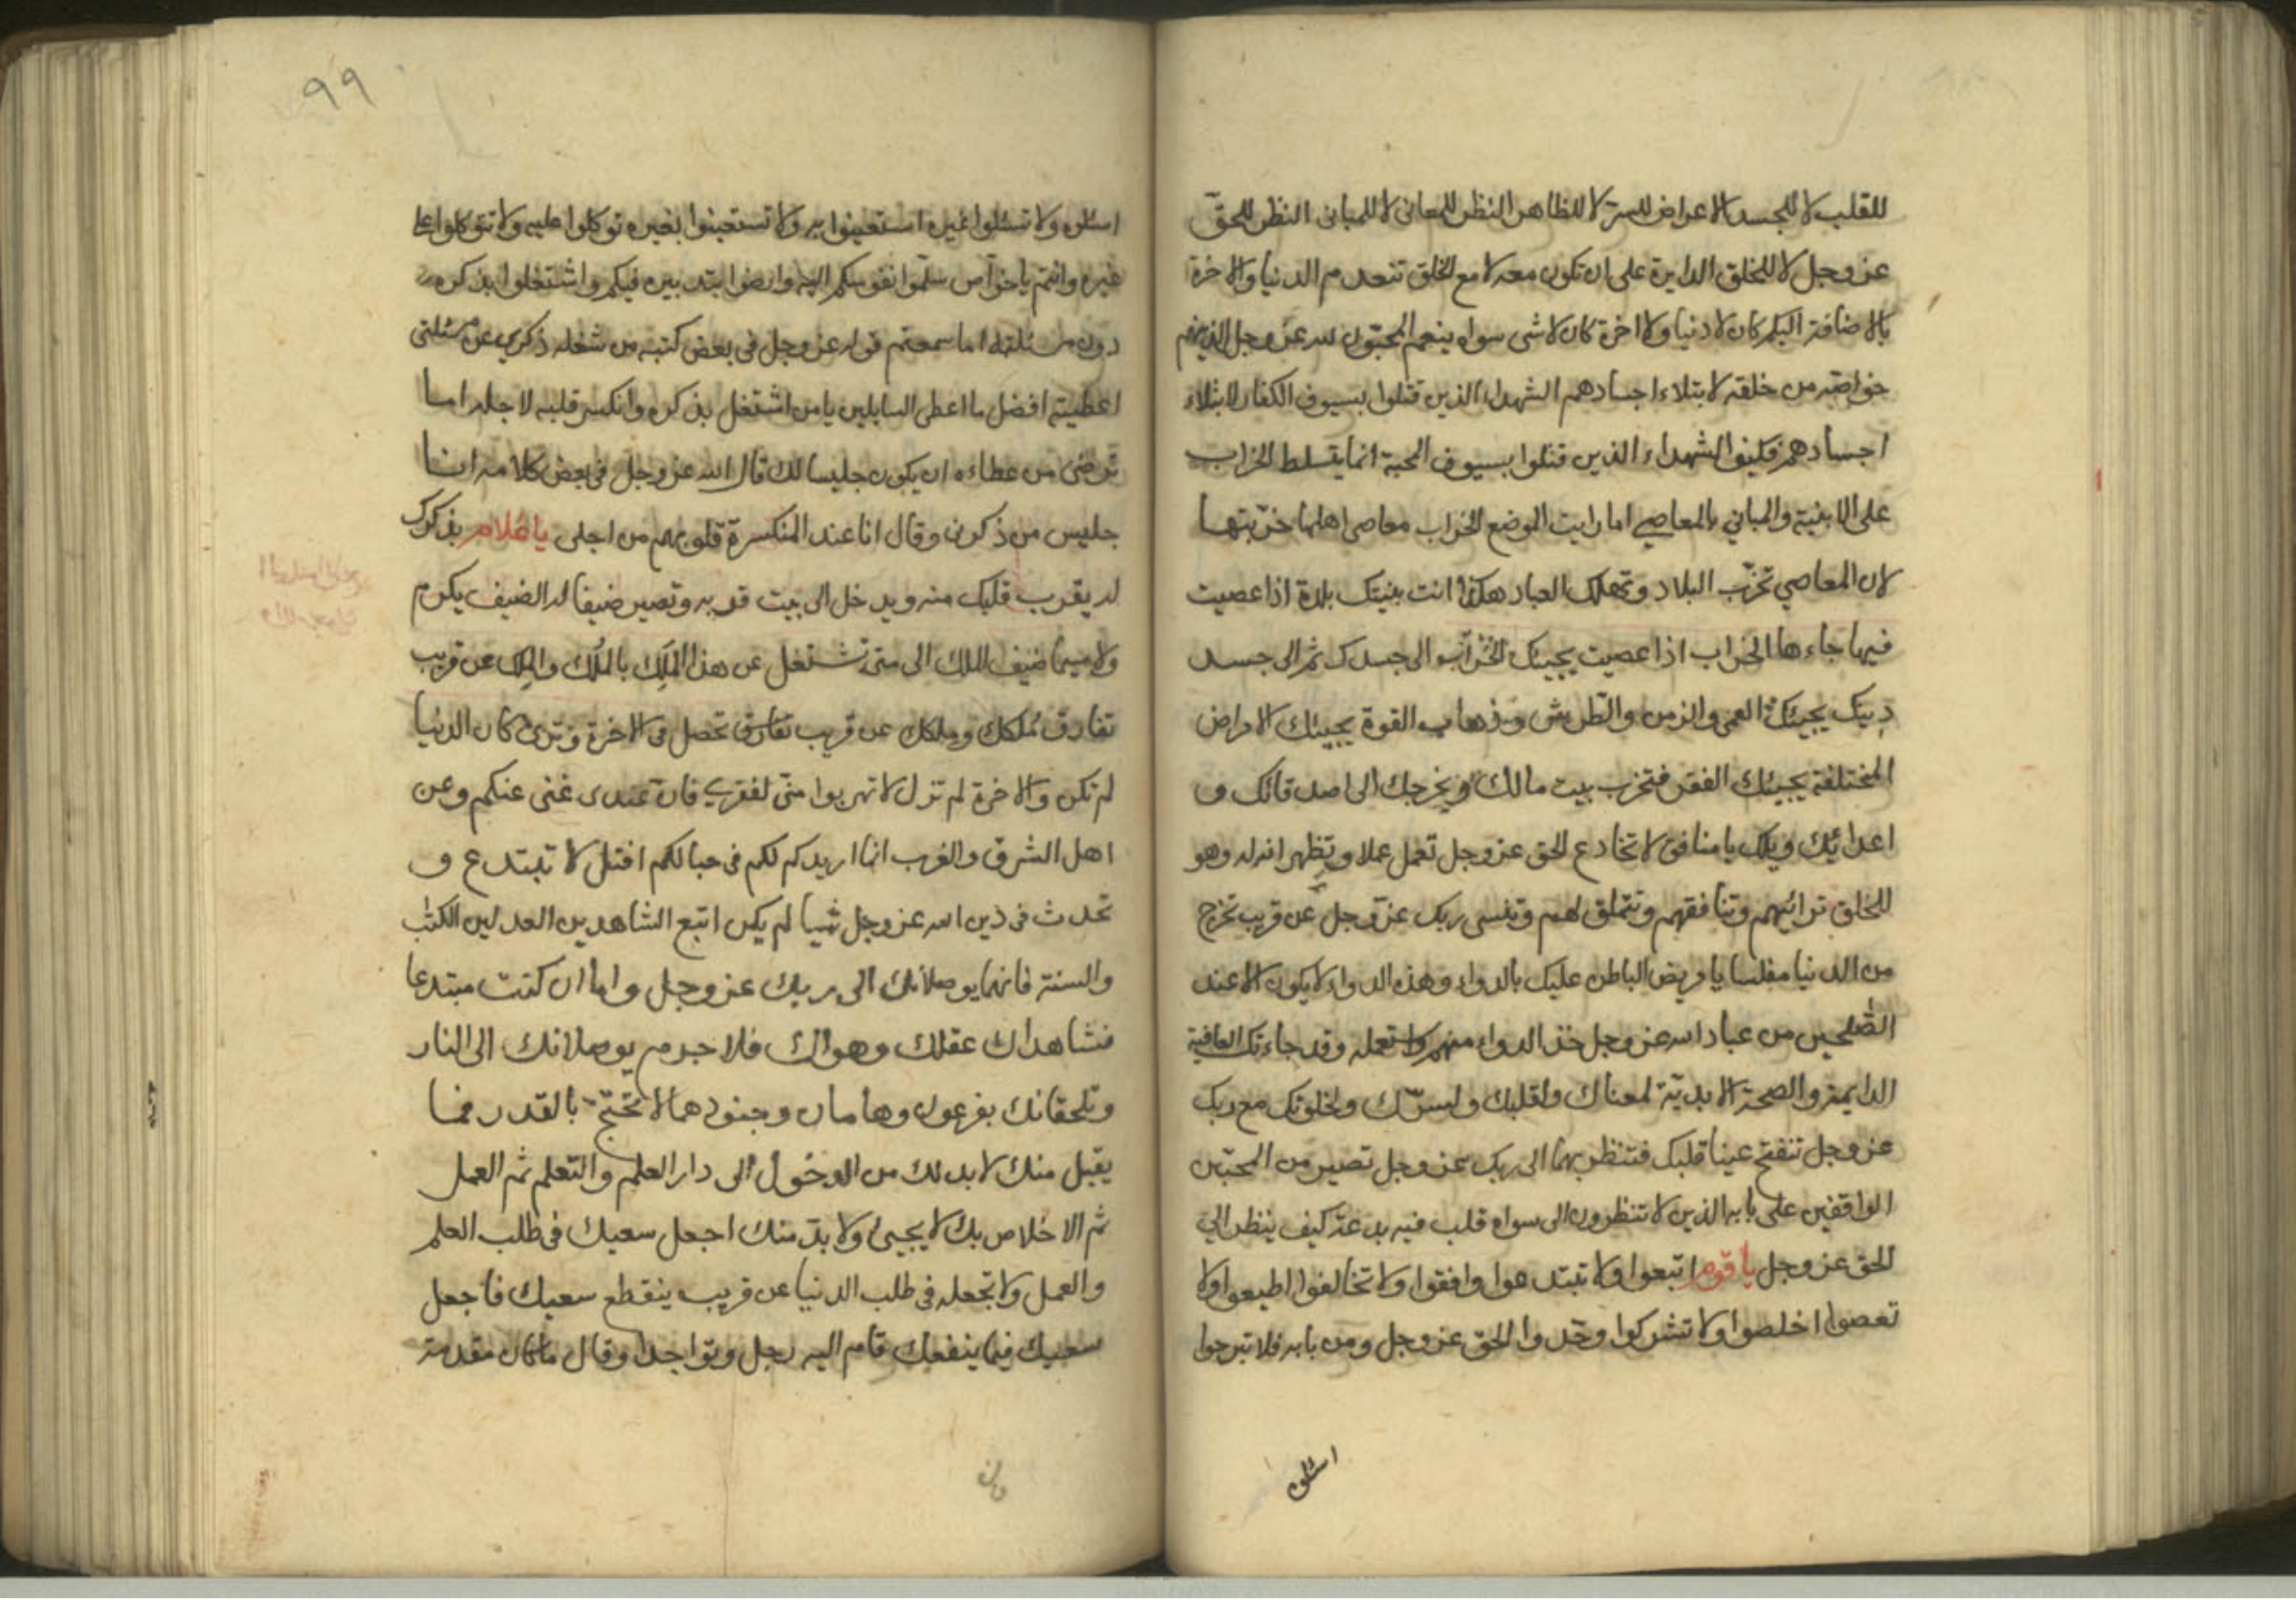 للقلب لا للجسد الاعراض للسر لا للظاهر النظر للمعانى لا للمبانى النظر للحق
عز وجل لا للخلق الدايرة على ان تكون معه لا مع الخلق تنعدم الدنيا والاخرة
بالاضافة اليكم كان لا دنيا ولا اخرة كان لا شى سواه ينعم المحبون لله عز وجل الذين هم
خواصه من خلقه لابتلاء اجسادهم الشهداء الذين قتلوا بسيوف الكفار لابتلاء
اجسادهم فكيف الشهداء الذين قتلوا بسيوف المحبة انما يتسلط الخراب
على الابنية والمبانى بالمعاصي اما رايت الموضع الخراب معاصى اهلها خربتها
لان المعاصي تخرب البلاد وتهلك العباد هكذا انت بنيتك بلدة اذا عصيت
فيها جاءها الخراب اذا عصيت يجيئك الخراب الى جسدك ثم الى جسد
دينك يجيئك العمى والزمن والطرش وذهاب القوة يجيئك الامراض
المختلفة يجيئك الفقر فتخرب بيت مالك ويخرجك الى اصدقائك و
اعدائك ويلك يا منافق لا تخادع الحق عز وجل تعمل عملا وتظهر انه له وهو
للخلق ترائيهم وتنافقهم وتتملق لهم وتنسى ربك عز وجل عن قريب تخرج
من الدنيا مفلسا يا مريض الباطن عليك بالدواء وهذه الدواء لا يكون الا عند
الصلحين من عباد الله عز وجل خذ الدواء منهم واستعمله وقد جاءتك العافية
الدايمة والصحة الابدية لمعناك ولقلبك ولسرك ولخلوتك مع ربك
عز وجل تنفتح عينا قلبك فتنظر بهما الى ربك عز وجل تصير من المحبين
الواقفين على بابه الذين لا تنظرون الى سواه قلب فيه بدعة كيف ينظر الي
الحق عز وجل يا قوم اتبعوا ولا تبتدعوا وافقوا ولا تخالفوا اطيعوا ولا
تعصوا اخلصوا ولا تشركوا وحدوا الحق عز وجل ومن بابه فلا تبرحوا
اسئلوه
٩٩
اسئلوه ولا تسئلوا غيره استعينوا به ولا تستعينوا بغيره توكلوا عليه ولا تتوكلوا على
غيره وانتم يا خواص سلموا نفوسكم اليه وارضوا بتدبيره فيكم واشتغلوا بذكره
دون مسئلته اما سمعتم قوله عز وجل فى بعض كتبه من شغله ذكري عن مسئلتى
اعطيته افضل ما اعطى السايلين يا من اشتغل بذكره وانكسر قلبه لاجله اما
ترضى من عطاءه ان يكون جليسا لك قال الله عز وجل فى بعض كلامه انا
جليس من ذكرنى وقال انا عند المنكسرة قلوبهم من اجلى يا غلام بذكرك
له يقرب قلبك منه ويدخل الى بيت قربه وتصير ضيفا له الضيف يكرم
ولا سيما ضيف الملك الى متى تشتغل عن هذا الملك بالملك والملك عن قريب
تفارق ملكك وملكك عن قريب تحصل فى الاخرة وترى كان الدنيا
لم تكن والاخرة لم تزل لا تهربوا منى لفقري فان عندى غنى عنكم وعن
اهل الشرق والغرب انما اريدكم لكم فى حبالكم افتل لا تبتدع و
تحدث فى دين الله عز وجل شيئا لم يكن اتبع الشاهدين العدلين الكتب
والسنة فانهما يوصلانك الى ربك عز وجل واما ان كنت مبتدعا
فشاهداك عقلك وهواك فلا جرم يوصلانك الى النار
ويلحقانك بفرعون وهامان وجنودهما لا تحتج بالقدر فما
يقبل منك لا بد لك من الدخول الى دار العلم والتعلم ثم العمل
ثم الاخلاص بك لا يجيئ ولا بد منك اجعل سعيك فى طلب العلم
والعمل ولا تجعله فى طلب الدنيا عن قريب ينقطع سعيك فاجعل
سعيك فيما ينفعك قام اليه رجل وتواجدا وقال ما كان مقدمة